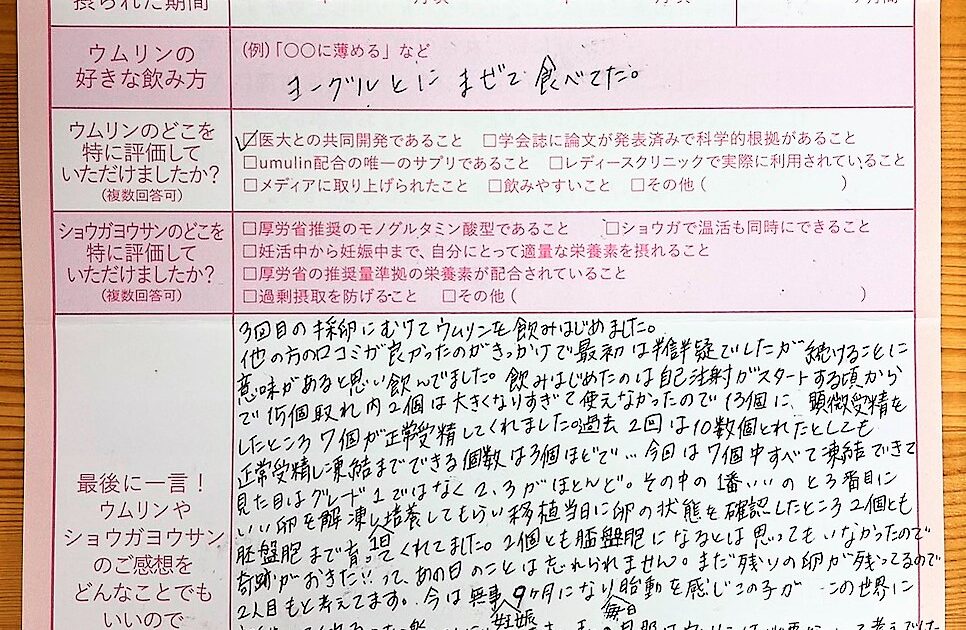 摂られた期間
ウムリンの
好きな飲み方
(例)「〇〇に薄める」など
ヨーグルトにまぜて食べてた。
ウムリンのどこを
特に評価して
いただけましたか?
(複数回答可)
☑医大との共同開発であること □学会誌に論文が発表済みで科学的根拠があること
□umulin配合の唯一のサプリであること □レディースクリニックで実際に利用されていること
□メディアに取り上げられたこと □飲みやすいこと □その他( )
ショウガヨウサンのどこを
特に評価して
いただけましたか?
(複数回答可)
□厚労省推奨のモノグルタミン酸型であること □ショウガで温活も同時にできること
□妊活中から妊娠中まで、自分にとって適量な栄養素を摂れること
□厚労省の推奨量準拠の栄養素が配合されていること
□過剰摂取を防げること □その他( )
最後に一言!
ウムリンや
ショウガヨウサン
のご感想を
どんなことでも
いいので
3回目の採卵にむけてウムリンを飲みはじめました。
他の方の口コミが良かったのがきっかけで最初は半信半疑でしたが続けることに
意味があると思い飲んでました。飲みはじめたのは自己注射がスタートする頃から
で15個取れ内2個は大きくなりすぎて使えなかったので13個に、顕微受精を
したところ7個が正常受精してくれました。過去2回は10数個とれたとしても
正常受精し凍結までできる個数は3個ほどで…今回は7個中すべて凍結できて
見た目はグレード1ではなく2,3がほとんど。その中の1番いいのと3番目に
いい卵を解凍し1日培養してもらい移植当日に卵の状態を確認したところ2個とも
胚盤胞まで育ってくれてました。2個とも胚盤胞になるとは思ってもいなかったので
奇跡がおきた!!って、あの日のことは忘れられません。まだ残りの卵が残ってるので
2人目もと考えてます。今は無事妊娠9ヶ月になり毎日胎動を感じこの子がこの世界に